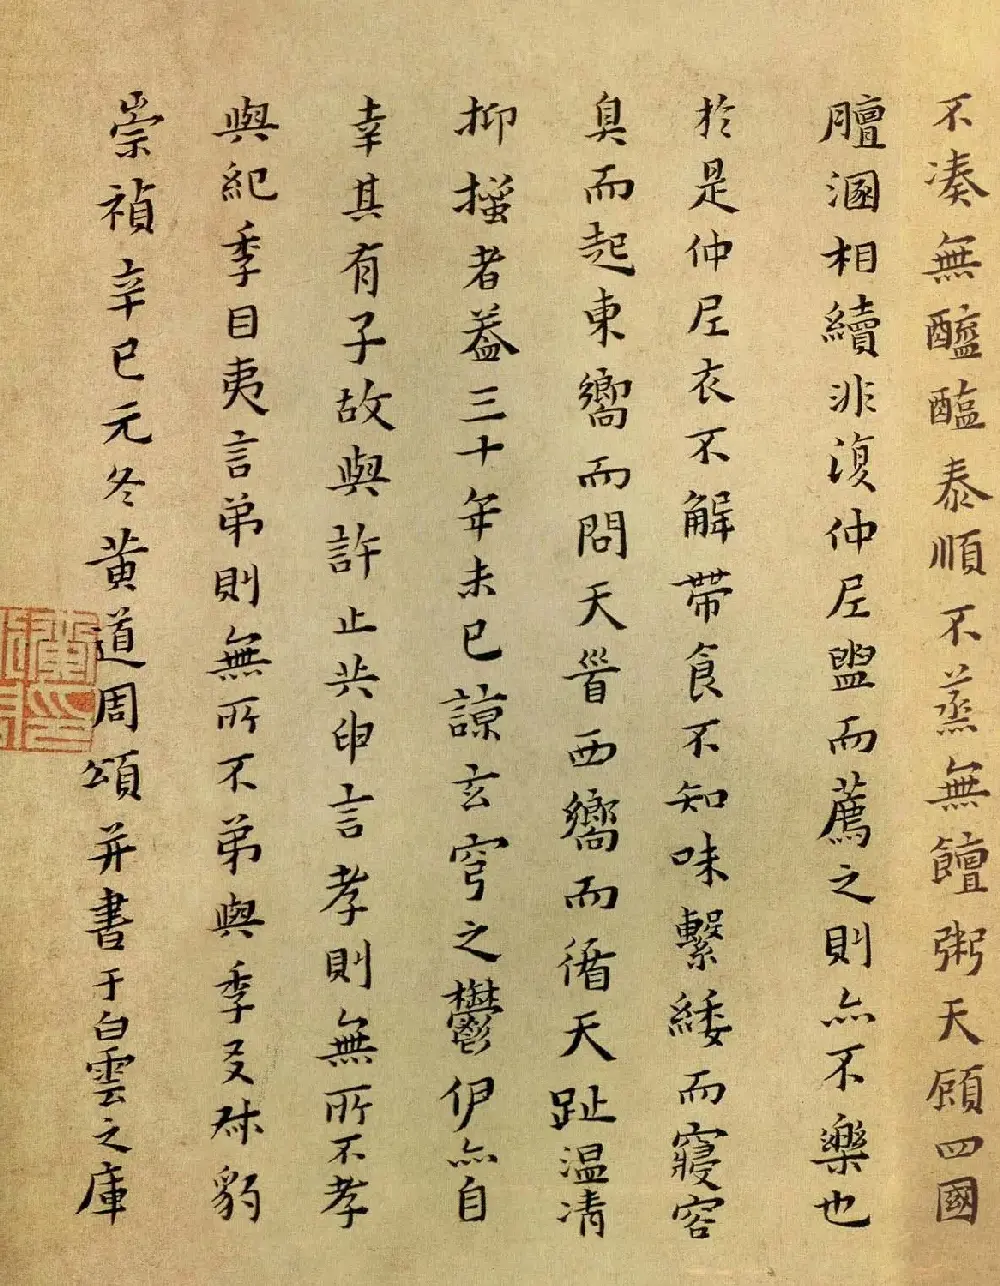 不凑無醯醢泰順不蒸無饘粥天顧四國
膻溷相續非復仲尼盥而薦之則亦不樂也
於是仲尼衣不解帶食不知味繫緌而寢容
臭而起東嚮而問天晉西嚮而循天趾温凊
抑搔者葢三十年未已諒玄穹之鬱伊亦自
幸其有子故與許止共申言孝則無所不孝
與紀季目夷言弟則無所不弟與季叐叔豹
崇禎辛巳元冬黄道周頌并書于白雲之庫